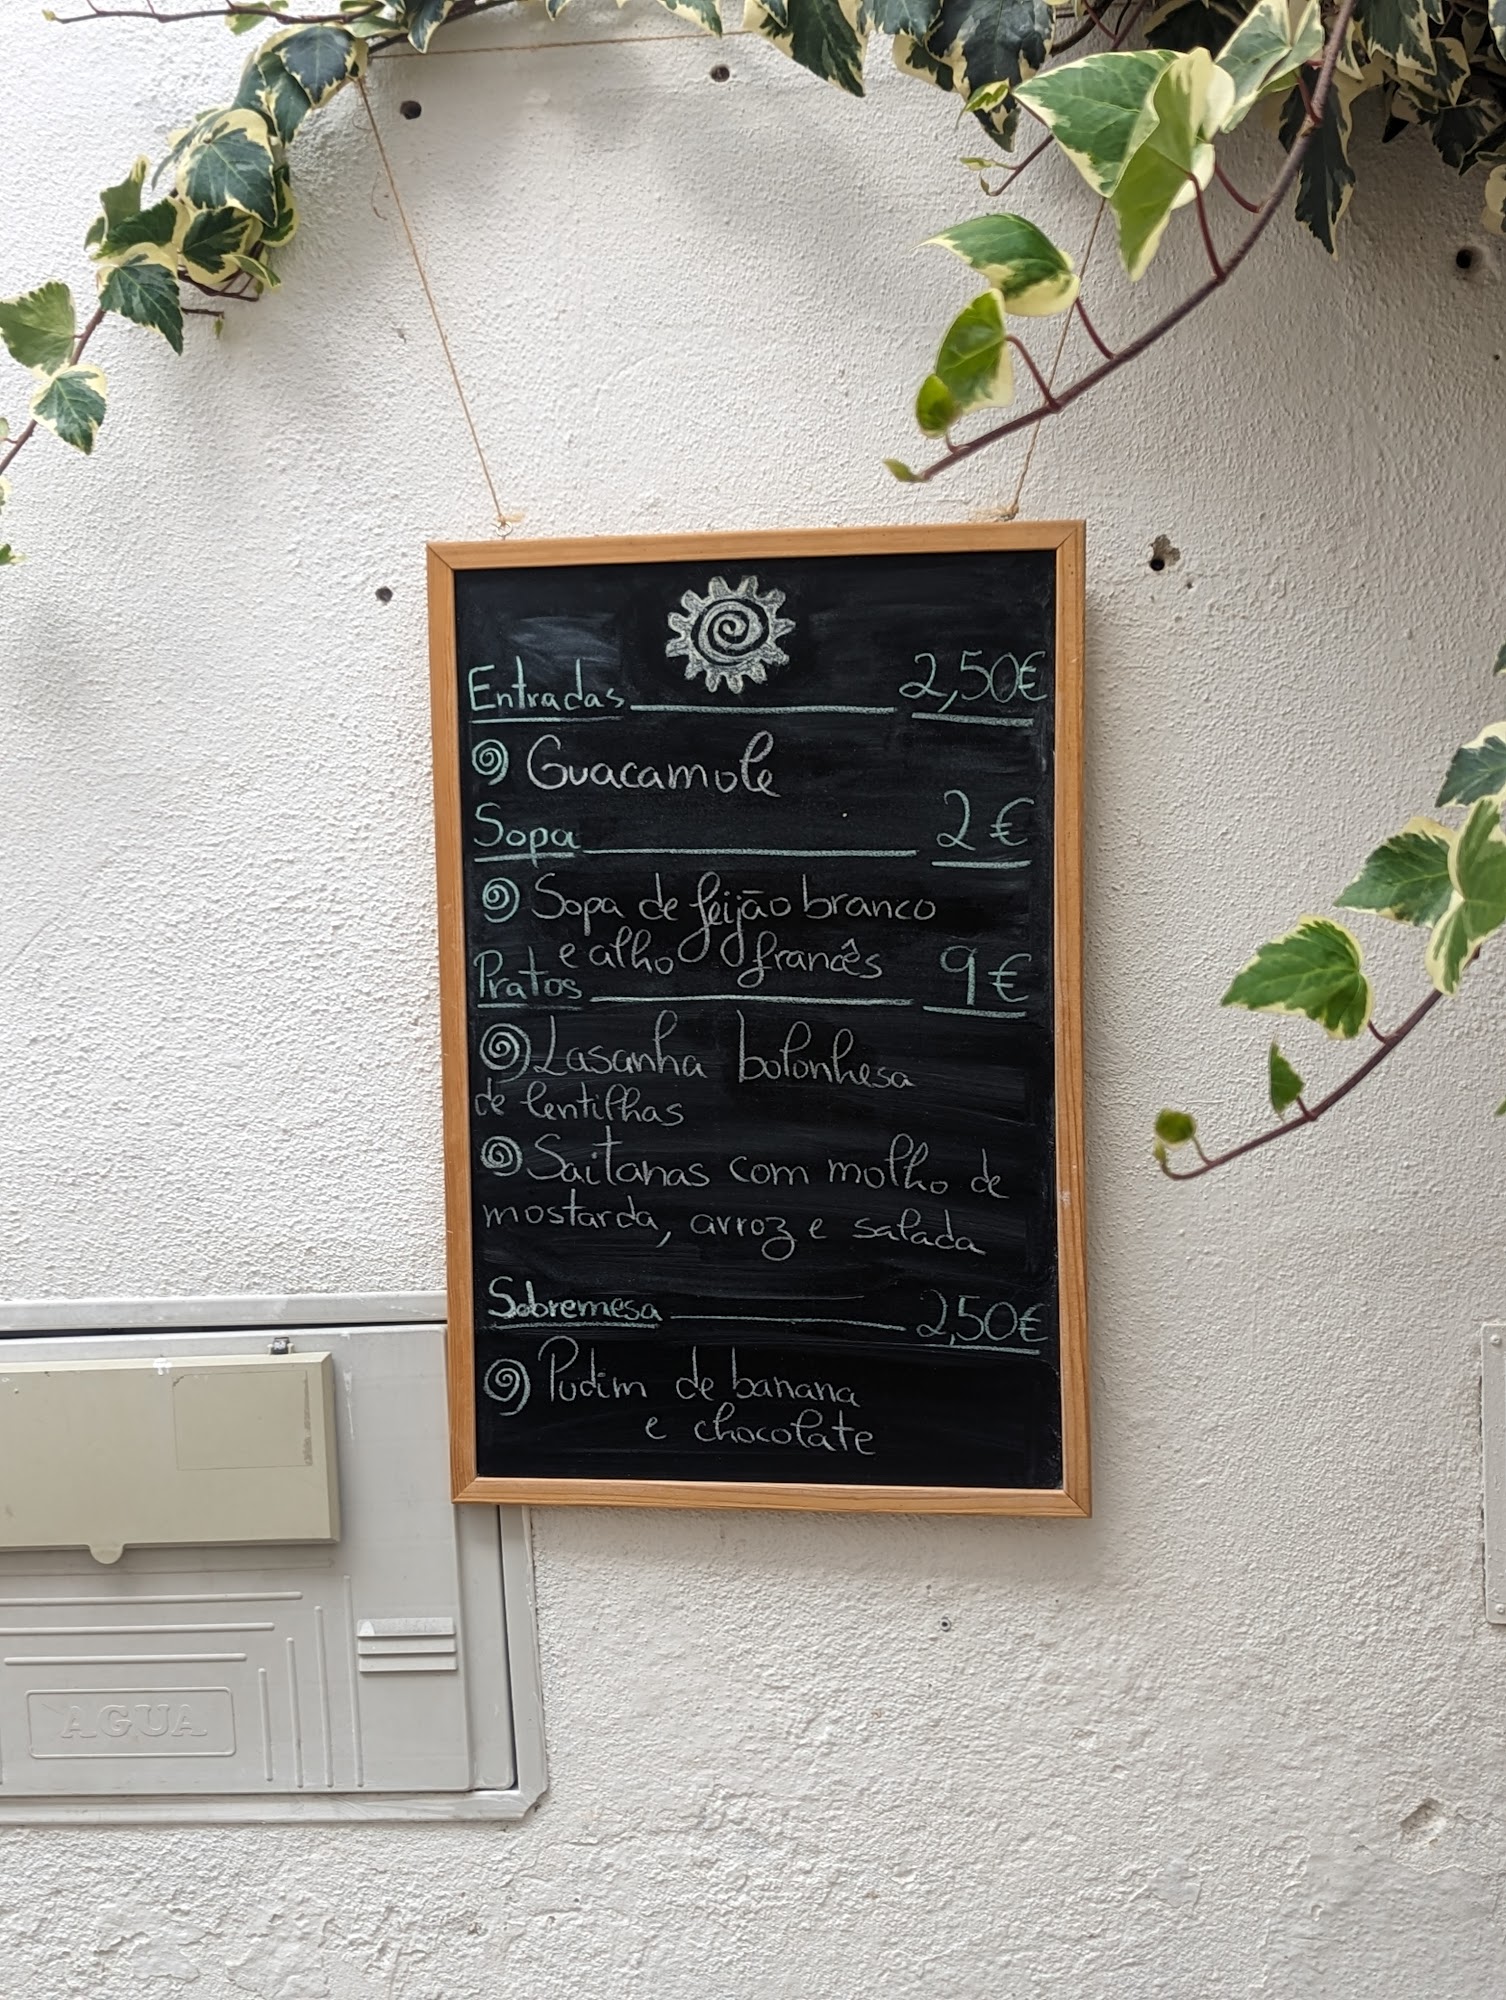 Entradas 2,50€
Guacamole
Sopa 2€
Sopa de feijão branco
e alho francês
Pratos 9€
Lasanha bolonhesa
de lentilhas
Saitanas com molho de
mostarda, arroz e salada
Sobremesa 2,50€
Pudim de banana
e chocolate
AGUA